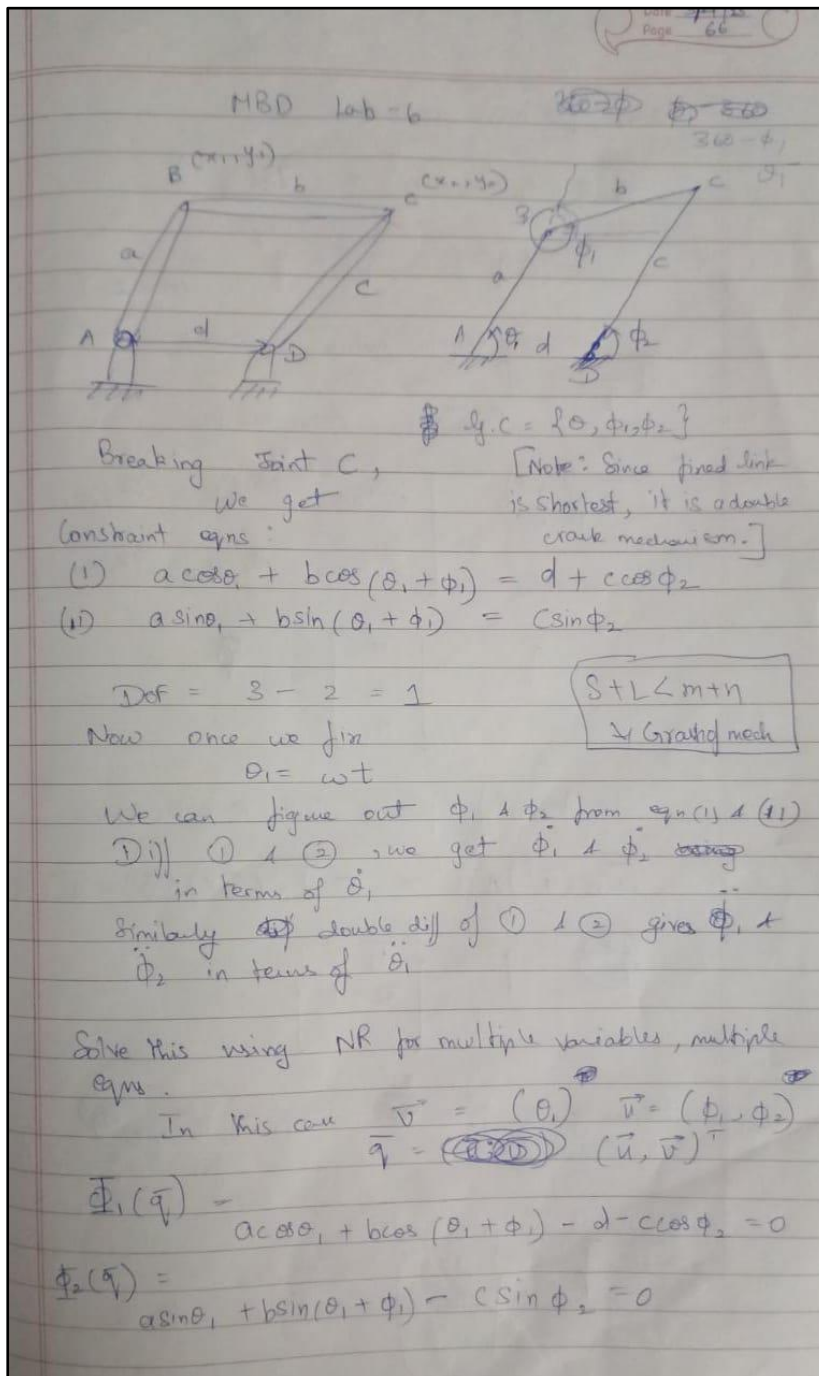 Page 66
MBD lab-6
360-φ1
B (x1, y1)
b
(x2, y2)
C
a
A
d
C
D
B
b
C
θ1
φ1
a
c
A
θ1
d
D
φ2
G.C = {θ, φ1, φ2}
Breaking Joint C,
[Note: Since fixed link
We get
is shortest, it is a double
Constraint eqns:
crank mechanism.]
(i) a cosθ1 + b cos(θ1 + φ1) = d + c cosφ2
(ii) a sinθ1 + b sin(θ1 + φ1) = c sinφ2
Dof = 3 - 2 = 1
S + L < m + n
Now once we fix
↳ Grashof mech
θ1 = ωt
We can figure out φ1 & φ2 from eqn (i) & (ii)
Diff ① & ②, we get φ̇1 & φ̇2
in terms of θ̇1
Similarly double diff of ① & ② gives φ̈1 &
φ̈2 in terms of θ̈1
Solve this using NR for multiple variables, multiple
eqns.
In this case v⃗ = (θ1) u⃗ = (φ1, φ2)
q̄ = (u⃗, v⃗)^T
Φ1(q̄) =
a cosθ1 + b cos(θ1 + φ1) - d - c cosφ2 = 0
Φ2(q̄) =
a sinθ1 + b sin(θ1 + φ1) - c sin φ2 = 0